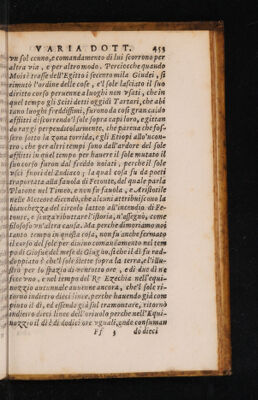 VARIA DOTT. 453
vn sol cenno, e comandamento di lui scorrono per
altra via, e per altro modo. Perciocche quando
Mosè trasse dell'Egitto i secento mila Giudei, si
rimutò l'ordine delle cose, e'l sole lasciato il suo
diritto corso peruenne a luoghi non vsati, che in
quel tempo gli Sciti detti oggidì Tartari, che abi
tano luoghi freddissimi, furono da così gran caldo
afflitti discorrendo'l sole sopra capi loro, e gittan
do raggi perpendicolarmente, che parena che fos-
sero sotto la zona torrida, e gli Etiopi allo'ncon-
tro, che per altri tempi sono dall'ardore del sole
afflitti in quel tempo per hauere il sole mutato il
suo corso furon dal freddo noiati, perche il sole
vscì fuori del Zodiaco; la qual cosa fu da poeti
trapportata alla fauola di Fetonte, del quale parla
Platone nel Timeo, e non fu fauola, e Aristotile
nelle Meteore dicendo, che alcuni attribuiscono la
bianchezza del circolo latteo all'incendio di Fe-
tonte, e senza ributtare l'istoria, n'assegnò, come
filosofo vn'altra causa. Ma perche dimoriamo noi
tanto tempo in questa cosa, non fu anche fermato
il corso del sole per diuino comandamento nel tem
po di Giosue del mese di Giugno, sì che il dì fu rad
doppiato è che'l sole stette sopra la terra, e'llu-
strò per lo spazio di ventotto ore, e di due dì ne
fece vno, e nel tempo del Re Ezechia nell'equi-
nozzio autunnale auuenne ancora, che'l sole ri-
tornò indietro dieci linee, perche hauendo già com
piuto il dì, ed essendo già sul tramontare, ritornò
indietro dieci linee dell'oriuolo perche nell'Equi-
nozzio il dì è di dodici ore vguali, onde consuman
Ff 3 do dieci